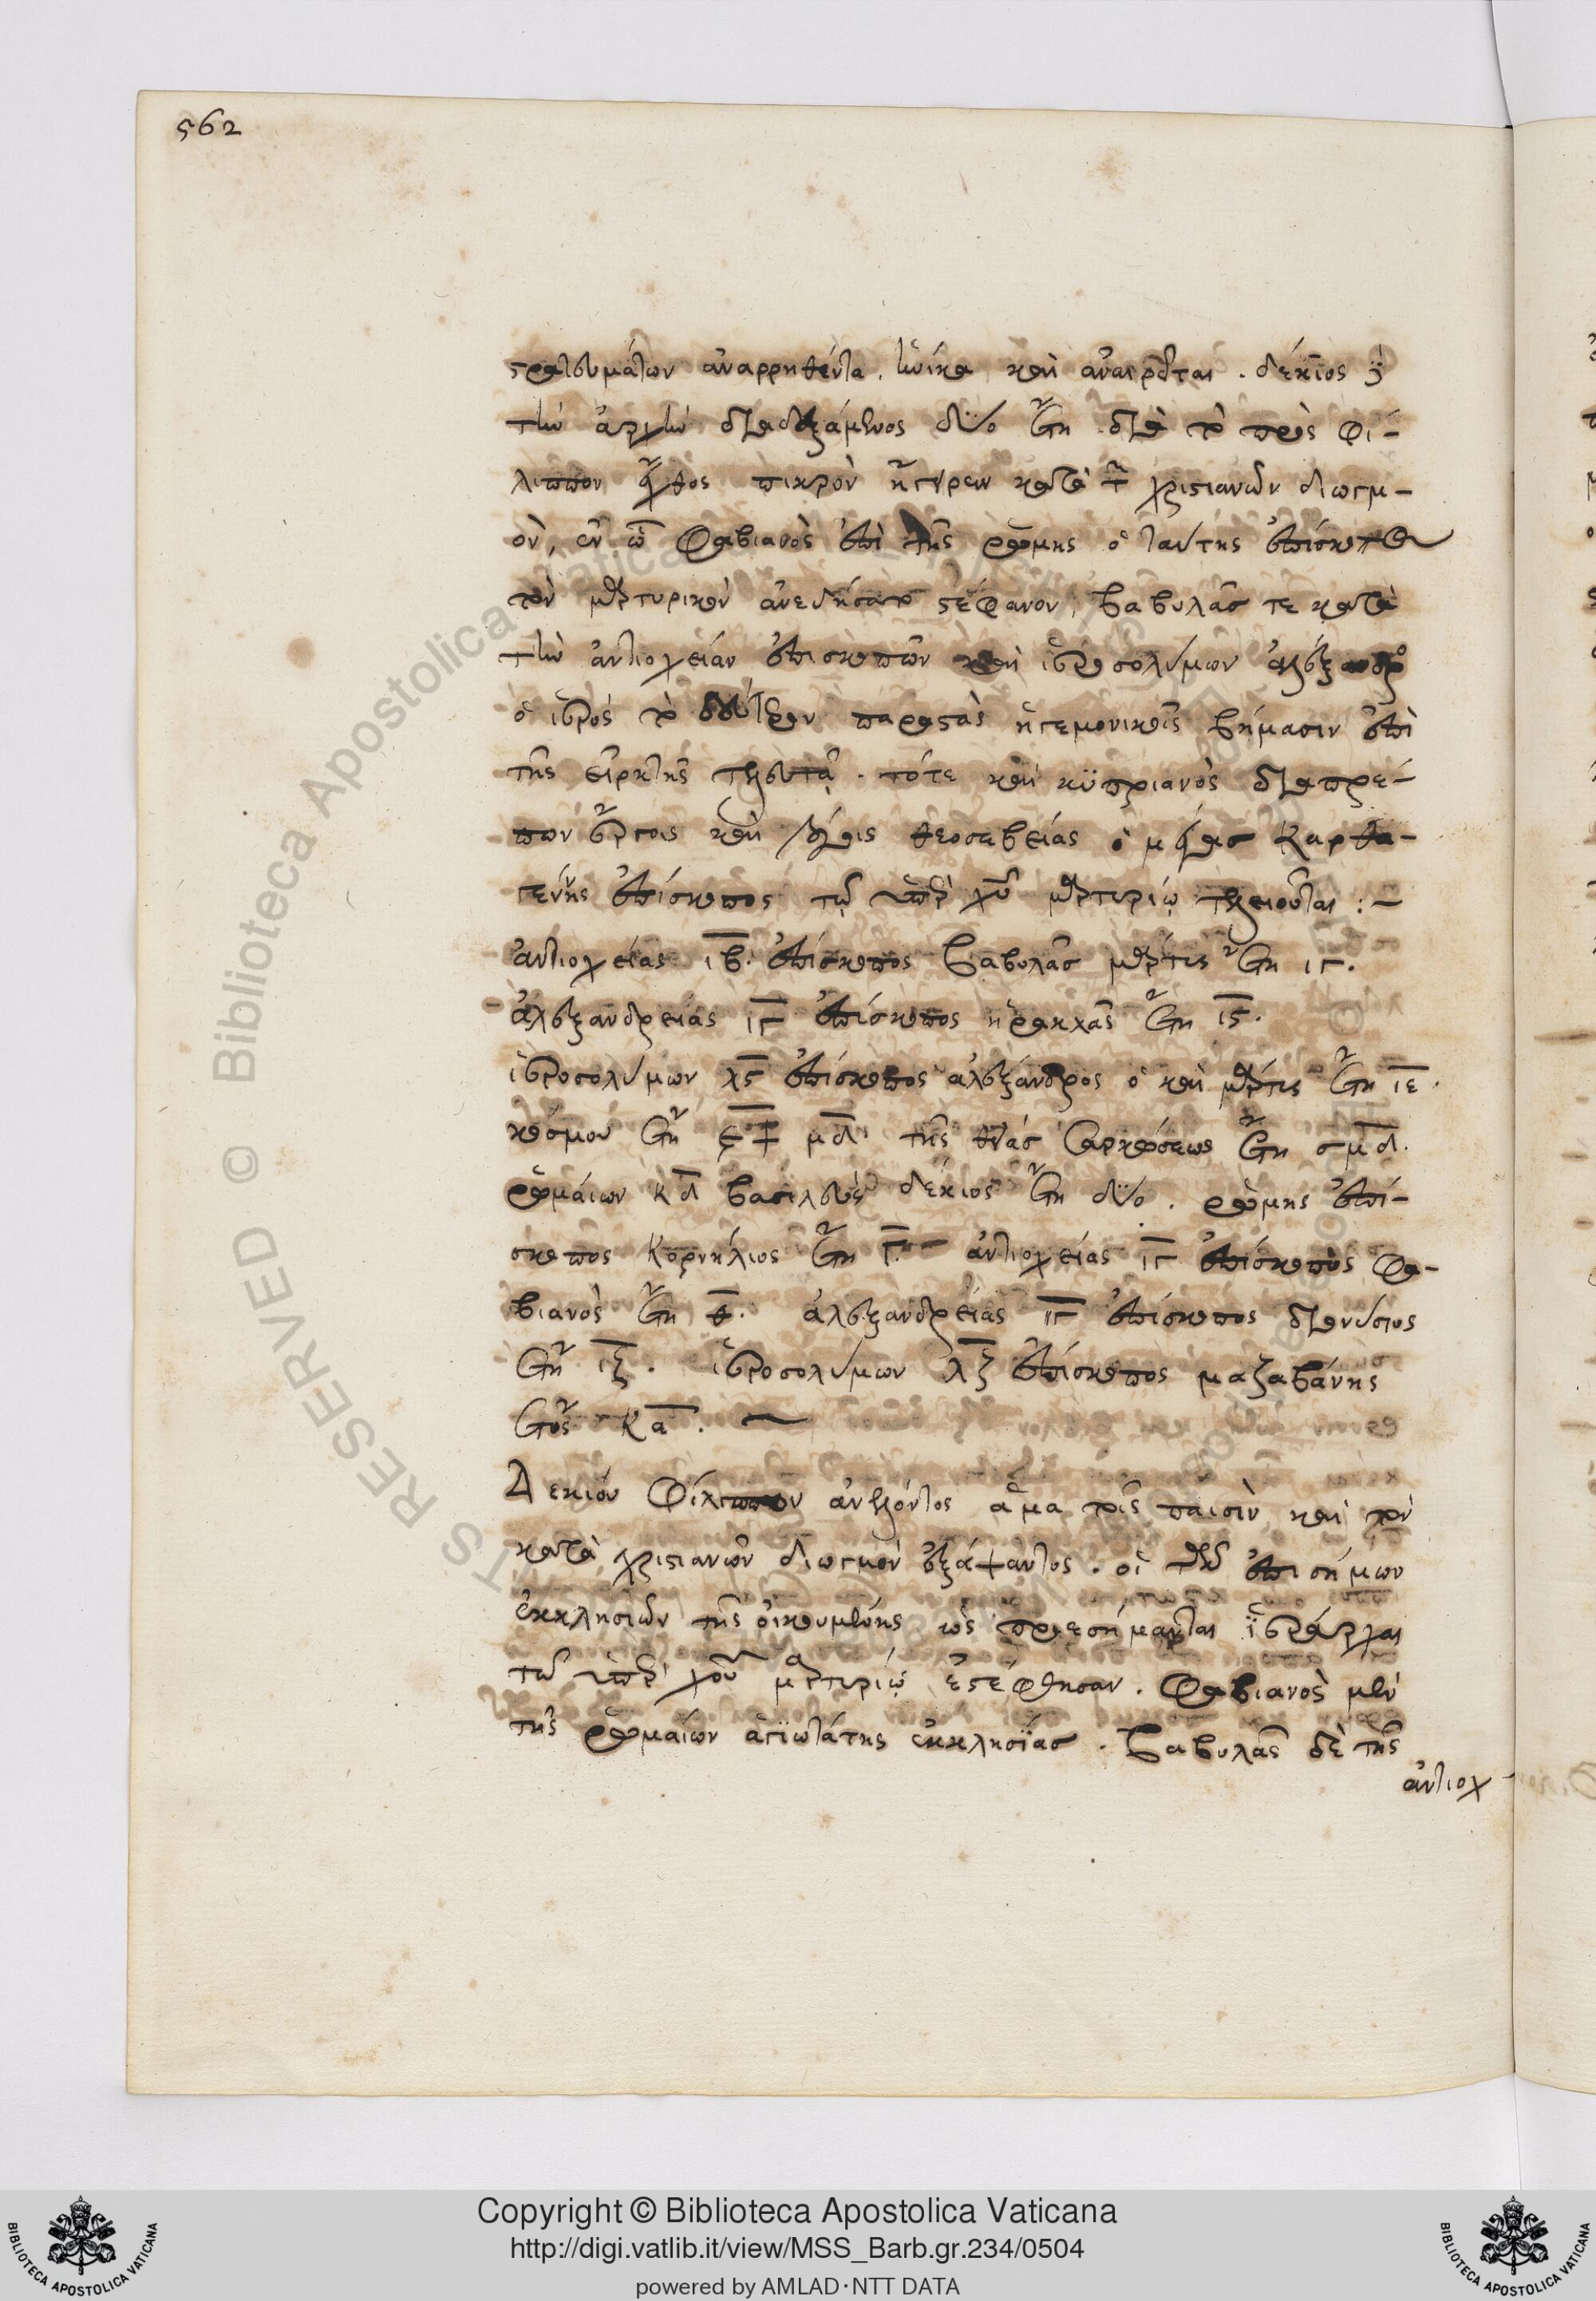 562
στρατευμάτων ἀναρρηθέντα, ἡνίκα καὶ ἀναιρεῖται. δέκιος
τὴν ἀρχὴν διαδεξάμενος δύο ἔτη διὰ τὸ πρὸς φί-
λιππον ἔχθος πικρὸν ἤγειρεν κατὰ τ̅ χριστιανῶν διωγμ-
ὸν, ἐν ᾧ Φαβιανὸς ἐπὶ τῆς ῥώμης ὁ ταύτης ἐπίσκοπος
τὸν μαρτυρικὸν ἀνεδήσατο στέφανον, βαβυλᾶς τε κατὰ
τὴν ἀντιοχείαν ἐπισκοπῶν καὶ ἱεροσολύμων ἀλέξανδρος
ὁ ἱερός τὸ δεύτερον παραστὰς ἡγεμονικοῖς βήμασιν ἐπὶ
τῆς εἱρκτῆς τελευτᾷ. τότε καὶ κϋπριανὸς διαπρέ-
πων ἔργοις καὶ λόγοις θεοσεβείας ὁ μέγας Καρθα-
γένης ἐπίσκοπος τῷ ὑπὲρ χῦ μαρτυρίῳ τελειοῦται:—
ἀντιοχείας ι̅β̅ ἐπίσκοπος βαβυλᾶς μάρτυς ἔτη ιγ.
ἀλεξανδρείας ι̅γ̅ ἐπίσκοπος ἡρακλᾶς ἔτη ι̅ϛ̅.
ἱεροσολύμων λ̅ϛ̅ ἐπίσκοπος ἀλέξανδρος ὁ καὶ μάρτυς ἔτη ι̅ε̅.
κόσμου ἔτη μ̅δ̅ τῆς θείας σαρκώσεως ἔτη σμ̅δ̅.
ῥωμαίων κ̅δ̅ βασιλεὺς δέκιος ἔτη δύο. ῥώμης ἐπί-
σκοπος Κορνήλιος ἔτη γ̅.— ἀντιοχείας ι̅γ̅ ἐπίσκοπος Φα-
βιανὸς ἔτη θ̅. ἀλεξανδρείας ι̅γ̅ ἐπίσκοπος διονύσιος
ἔτη ι̅ζ̅. ἱεροσολύμων λ̅ζ̅ ἐπίσκοπος μαζαβάνης
ἔτος κ̅α̅.
Δεκίου Φίλιππον ἀνελόντος ἅμα τοῖς παισὶν καὶ τὸν
κατὰ χριστιανῶν διωγμὸν ἐξάψαντος. οἱ τῶν ἐπισήμων
ἐκκλησιῶν τῆς οἰκουμένης ὡς προεσήμανται ἱεράρχαι
τῷ ὑπὲρ χοῦ μαρτυρίῳ ἐστέφθησαν. Φαβιανὸς μὲν
τῆς ῥωμαίων ἁγιωτάτης ἐκκλησίας. βαβυλᾶς δὲ τῆς
ἀντιοχ
Copyright © Biblioteca Apostolica Vaticana
http://digi.vatlib.it/view/MSS_Barb.gr.234/0504
powered by AMLAD·NTT DATA
BIBLIOTECA APOSTOLICA VATICANA
BIBLIOTECA APOSTOLICA VATICANA